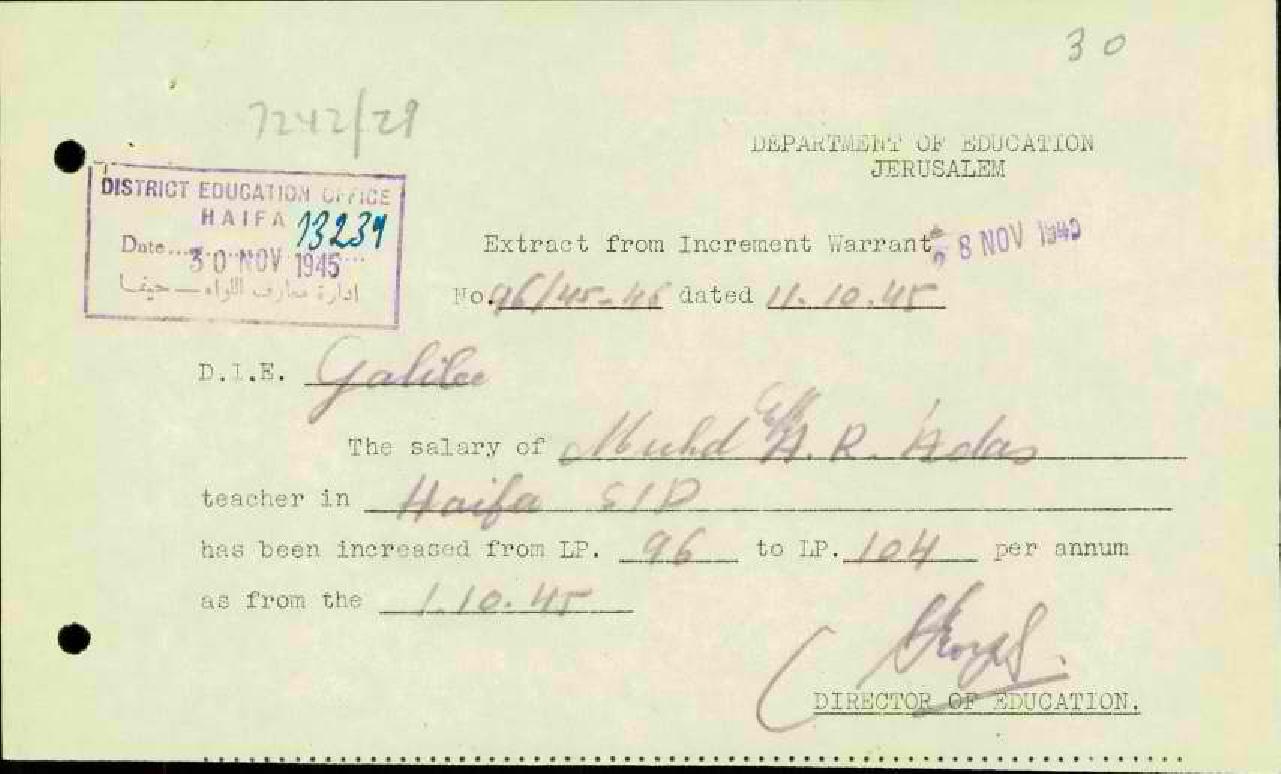 30
7242/29
DEPARTMENT OF EDUCATION
JERUSALEM
DISTRICT EDUCATION OFFICE
HAIFA 13239
Date... 30 NOV 1945
ادارة معارف اللواء — حيفا
Extract from Increment Warrant 28 NOV 194
No. 96/45-46 dated 11.10.45
D.I.E. Galilee
The salary of Muhd Eff. A. R. Adas
teacher in Haifa
has been increased from LP. 96 to LP. 104 per annum
as from the 1.10.45
DIRECTOR OF EDUCATION.